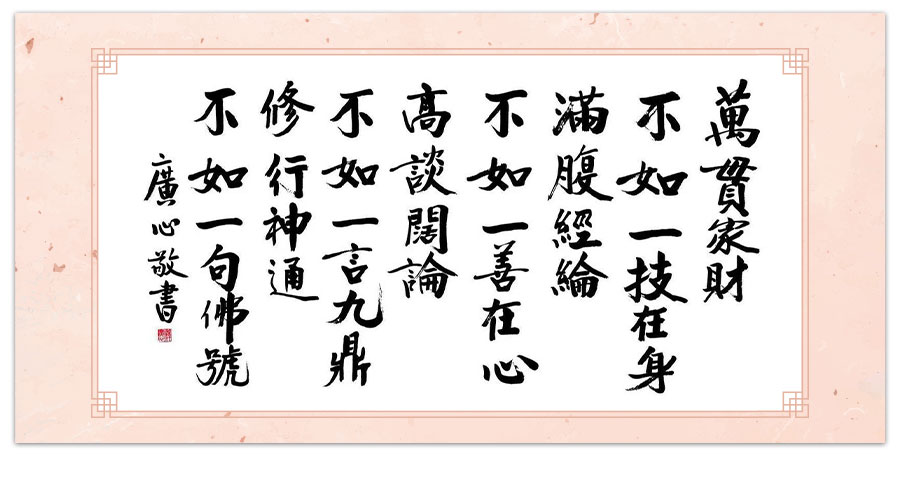 萬貫家財
不如一技在身
滿腹經綸
不如一善在心
高談闊論
不如一言九鼎
修行神通
不如一句佛號
廣心敬書